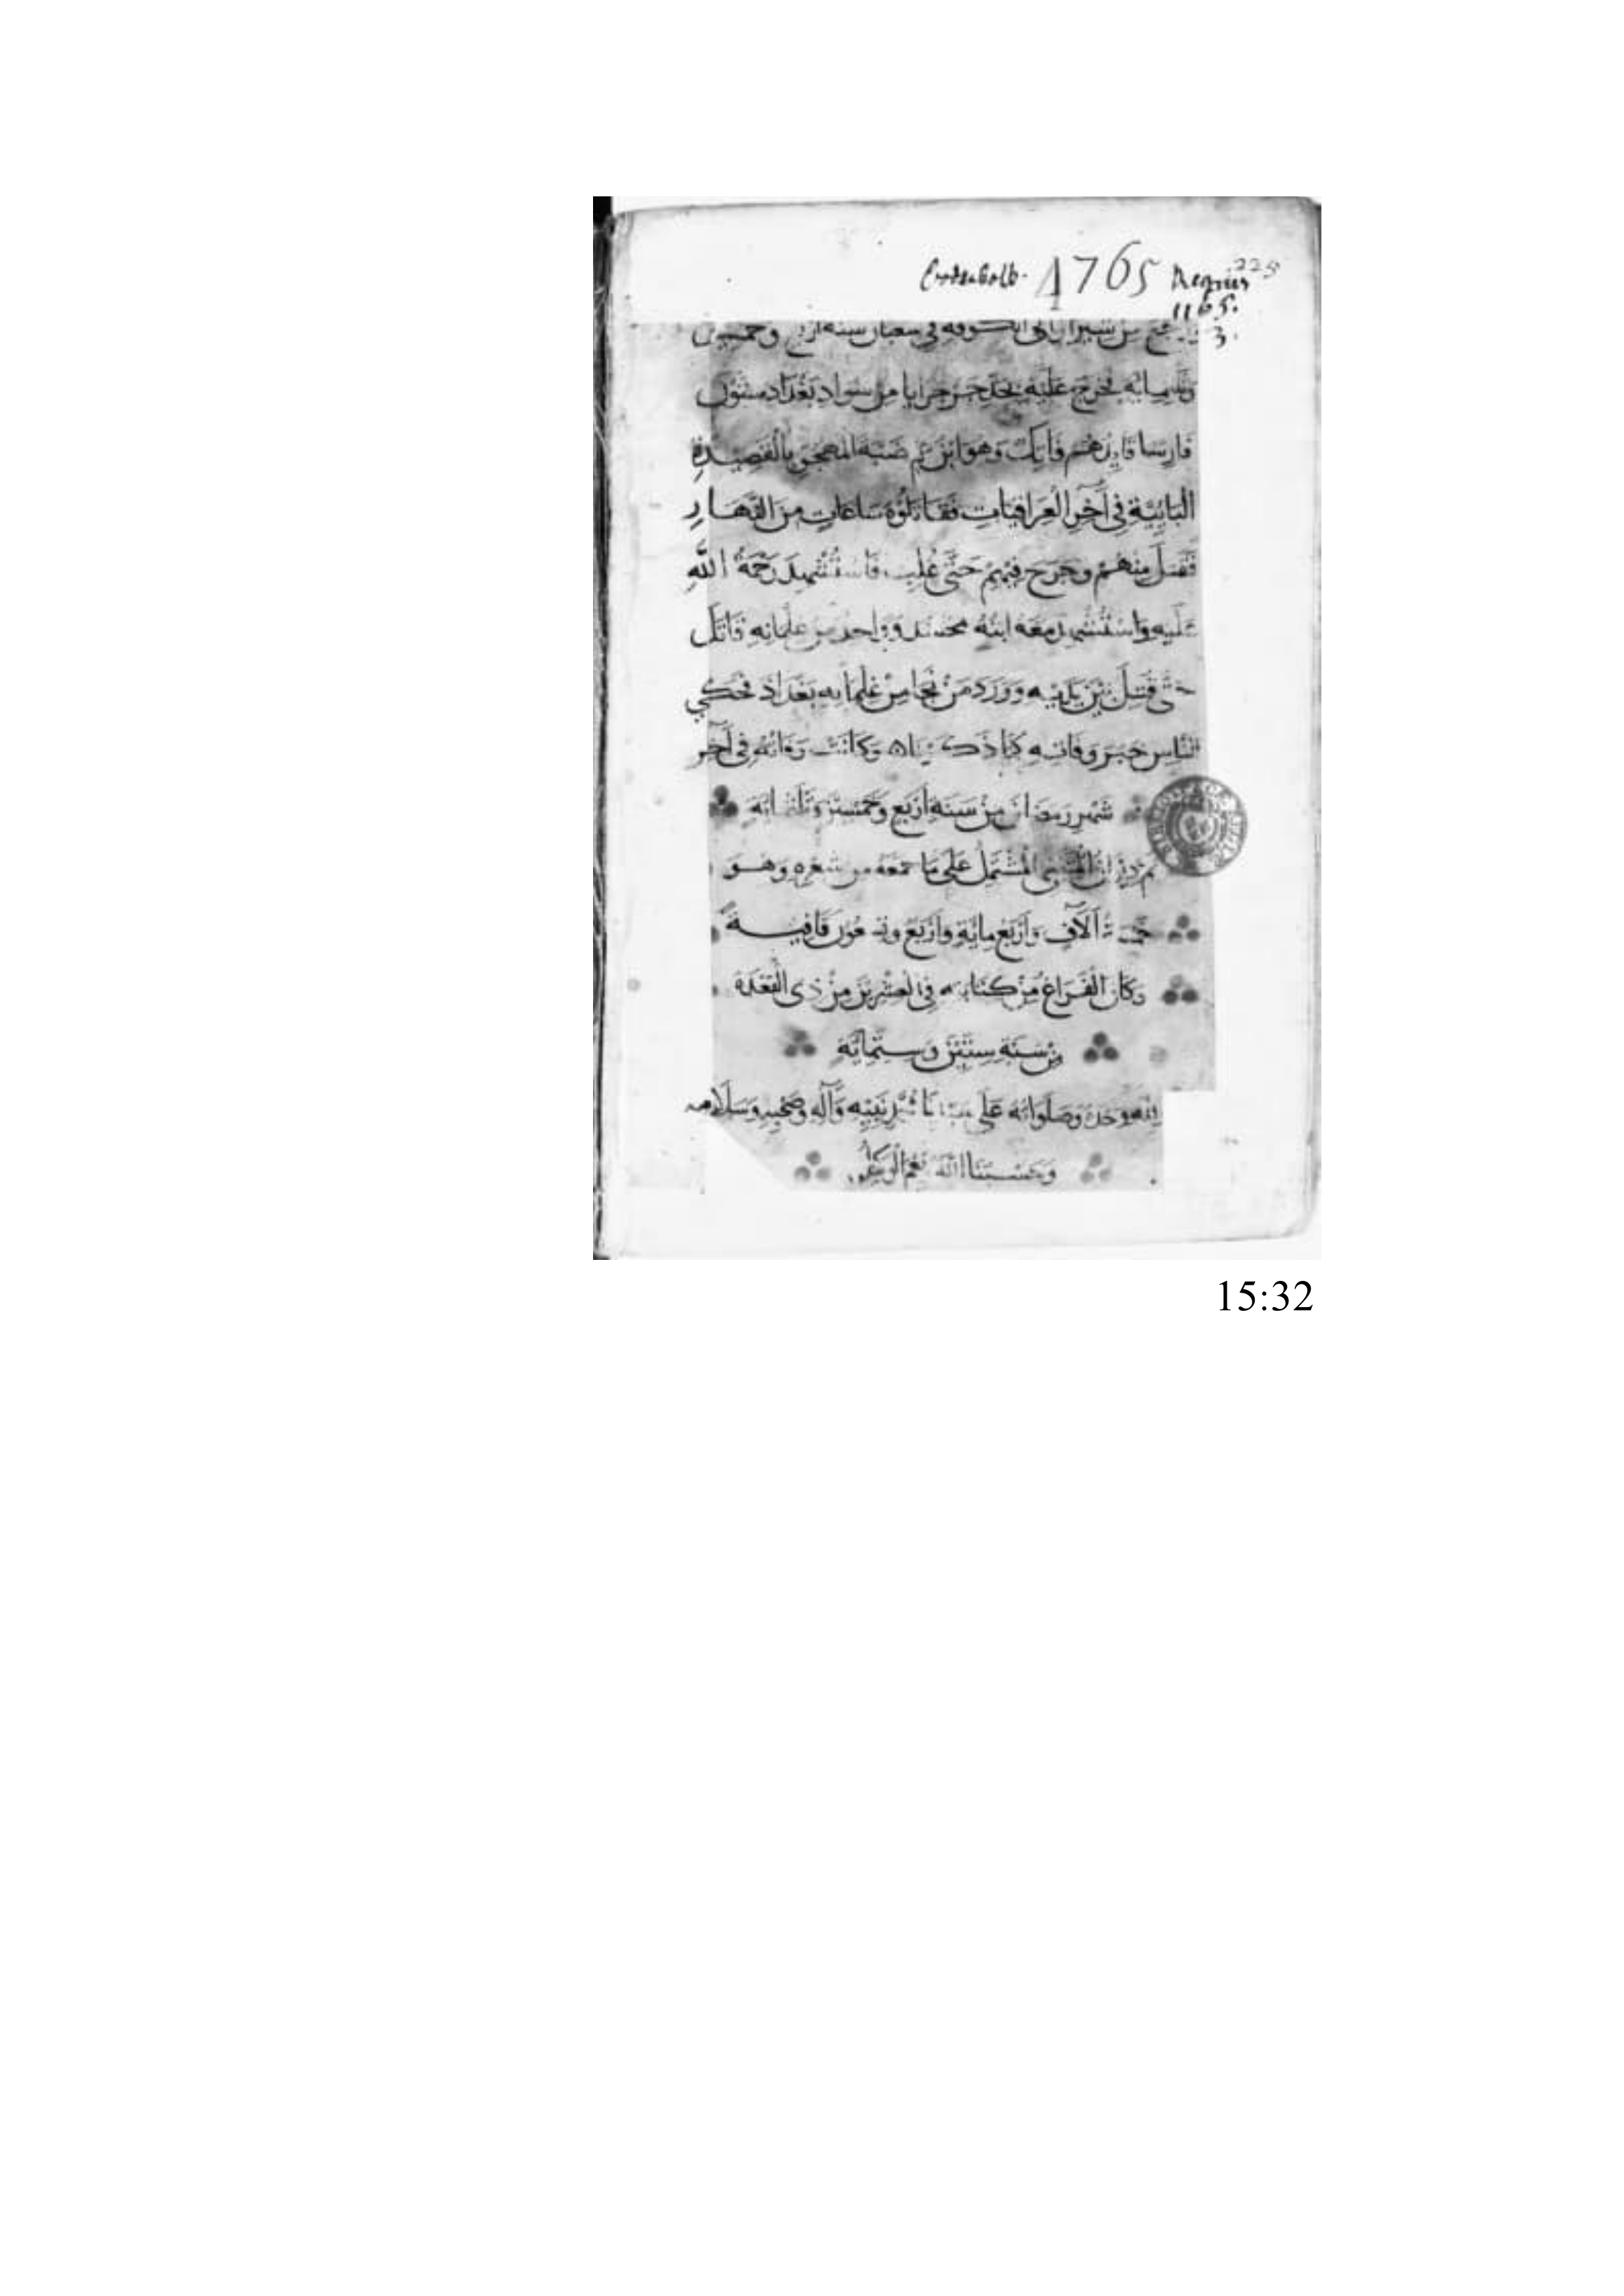 Codex Colb. 4765 Regius 225
1165.
3.
من شيراز إلى الكوفة في شعبان سنة أربع وخمسين
وثلثمائة فخرج عليه بحذ جرجرايا من سواد بغداد ستون
فارسا قايدهم فاتك وهو ابن عم ضبة المهجو بالقصيدة
البائية في آخر العراقيات فقاتلوه ساعات من النهار
فقتل منهم وجرح فيهم حتى غلب فاستشهد رحمة الله
عليه واستشهد معه ابنه محسد وواحد من غلمانه قاتل
حتى قتل بين يديه وورد من نجا من غلمانه بغداذ فحكي
للناس خبر وفاته كما ذكرناه وكانت وفاته في آخر
شهر رمضان من سنة أربع وخمسين وثلثمائة
تم ديوان المتنبي المشتمل على ما جمعه من شعره وهو
خمسة آلاف وأربع مائة وأربع وتسعون قافية
وكان الفراغ من كتابته في العشرين من ذي القعدة
من سنة ستين وستمائة
لله وحده وصلواته على سيدنا محمد نبيه وآله وصحبه وسلامه
وحسبنا الله ونعم الوكيل
15:32